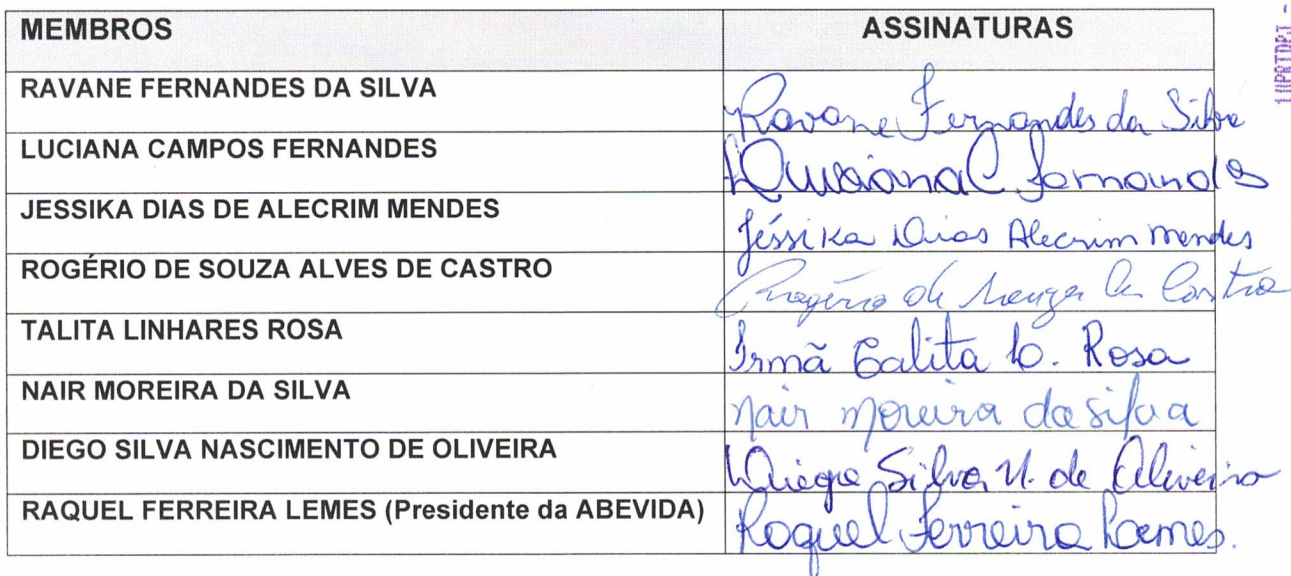 MEMBROS ASSINATURAS
RAVANE FERNANDES DA SILVA Ravane Fernandes da Silva
LUCIANA CAMPOS FERNANDES Luciana C. Fernandes
JESSIKA DIAS DE ALECRIM MENDES Jéssika Dias Alecrim Mendes
ROGÉRIO DE SOUZA ALVES DE CASTRO Rogério de Souza A. Castro
TALITA LINHARES ROSA Irmã Talita L. Rosa
NAIR MOREIRA DA SILVA Nair Moreira da Silva
DIEGO SILVA NASCIMENTO DE OLIVEIRA Diego Silva N. de Oliveira
RAQUEL FERREIRA LEMES (Presidente da ABEVIDA) Raquel Ferreira Lemes.